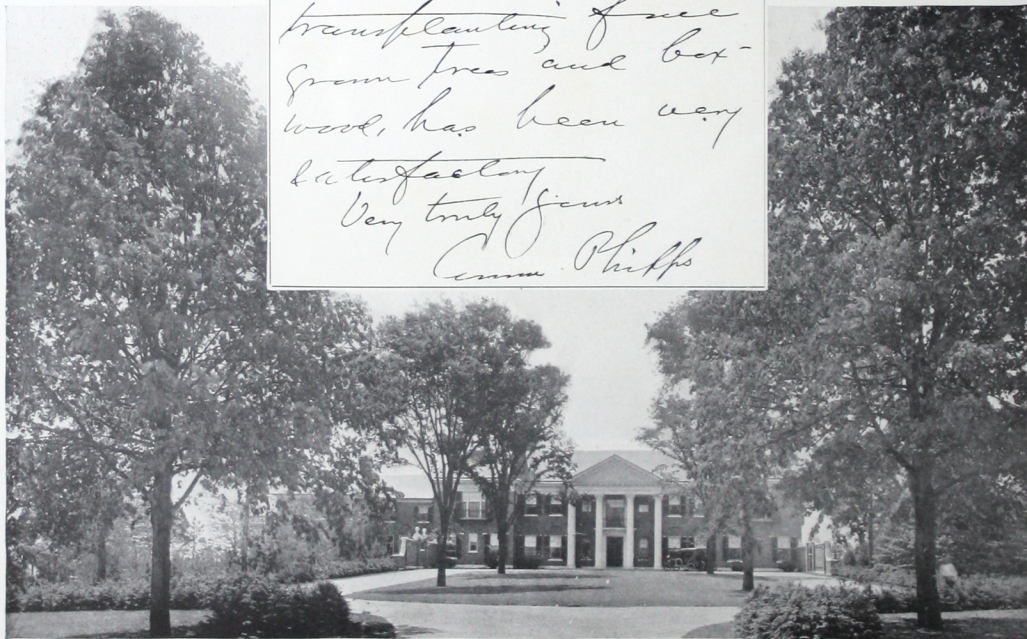 transplanting of nice
grown trees and box-
wood, has been very
satisfactory
Very truly yours
Phipps